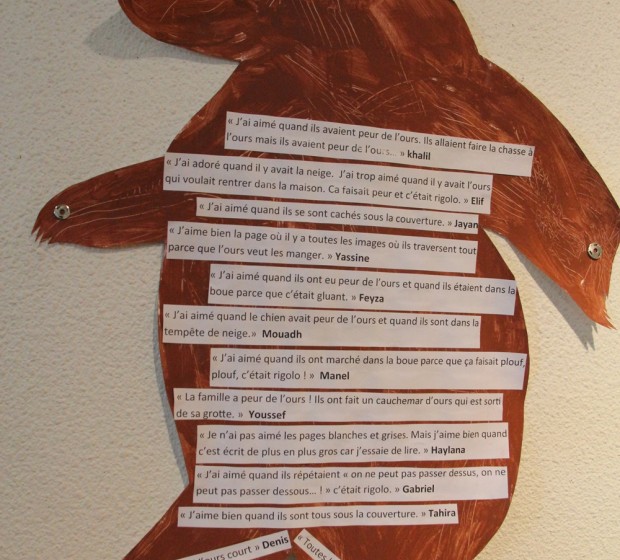 « J'ai aimé quand ils avaient peur de l'ours. Ils allaient faire la chasse à
l'ours mais ils avaient peur de l'ours... » khalil
« J'ai adoré quand il y avait la neige. J'ai trop aimé quand il y avait l'ours
qui voulait rentrer dans la maison. Ca faisait peur et c'était rigolo. » Elif
« J'ai aimé quand ils se sont cachés sous la couverture. » Jayan
« J'aime bien la page où il y a toutes les images où ils traversent tout
parce que l'ours veut les manger. » Yassine
« J'ai aimé quand ils ont eu peur de l'ours et quand ils étaient dans la
boue parce que c'était gluant. » Feyza
« J'ai aimé quand le chien avait peur de l'ours et quand ils sont dans la
tempête de neige.» Mouadh
« J'ai aimé quand ils ont marché dans la boue parce que ça faisait plouf,
plouf, c'était rigolo ! » Manel
« La famille a peur de l'ours ! Ils ont fait un cauchemar d'ours qui est sorti
de sa grotte. » Youssef
« Je n'ai pas aimé les pages blanches et grises. Mais j'aime bien quand
c'est écrit de plus en plus gros car j'essaie de lire. » Haylana
« J'ai aimé quand ils répétaient « on ne peut pas passer dessus, on ne
peut pas passer dessous... ! » c'était rigolo. » Gabriel
« J'aime bien quand ils sont tous sous la couverture. » Tahira
court » Denis
« Toutes